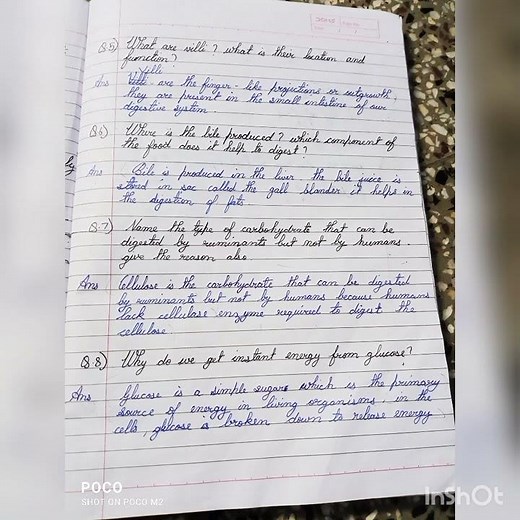 Q.5) What are villi? what is their location and
function?
Villi
Ans Villi are the finger-like projections or outgrowth,
they are present in the small intestine of our
digestive system.
Q.6) Where is the bile produced? which component of
the food does it help to digest?
Ans Bile is produced in the liver the bile juice is
stored in sac called the gall blander it helps in
the digestion of fats
Q.7) Name the type of carbohydrate that can be
digested by ruminants but not by humans.
give the reason also
Ans Cellulose is the carbohydrate that can be digested
by ruminants but not by humans because humans
lack cellulase enzyme required to digest the
cellulose
Q.8) Why do we get instant energy from glucose?
Ans Glucose is a simple sugar which is the primary
source of energy in living organisms. in the
cells, glucose is broken down to release energy
POCO
SHOT ON POCO M2
InShOt